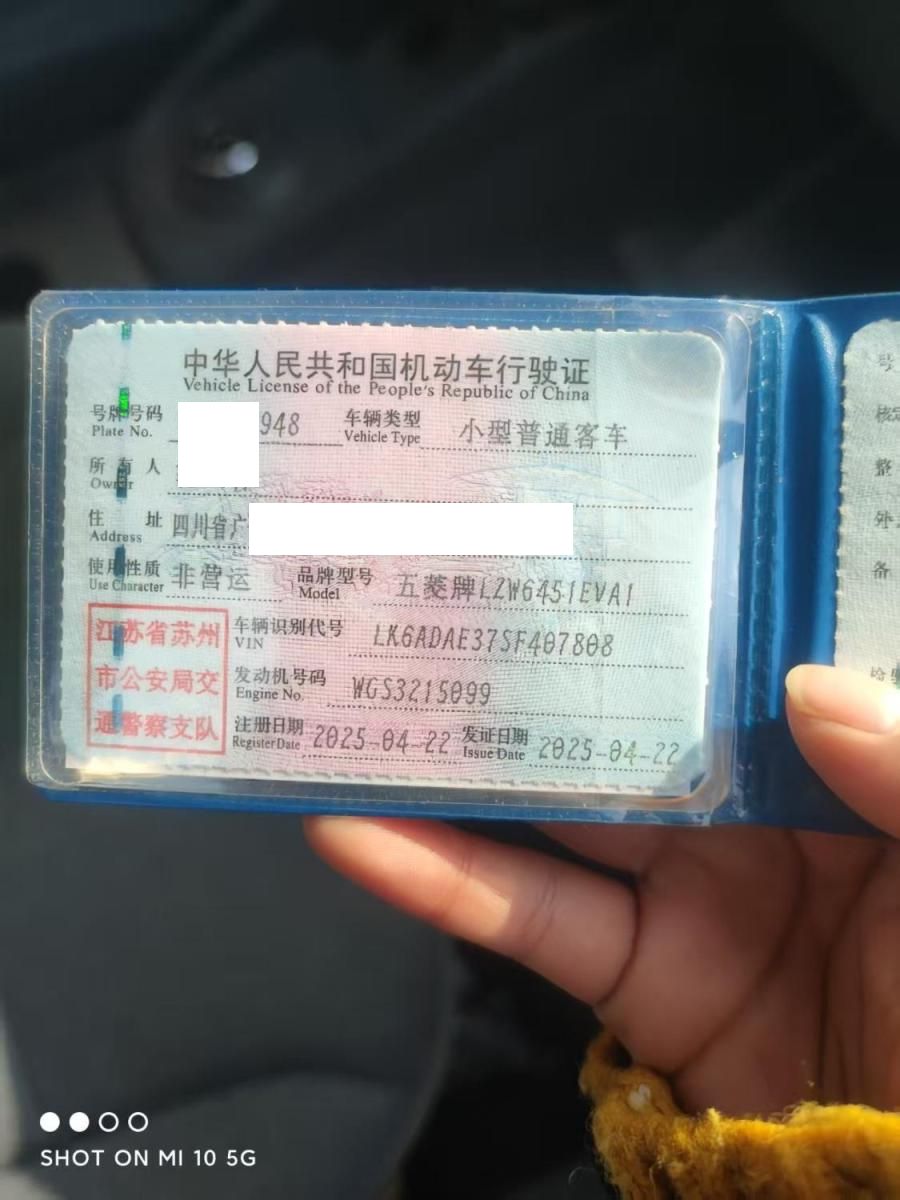 中华人民共和国机动车行驶证
Vehicle License of the People's Republic of China
号牌号码 948 车辆类型 小型普通客车
Plate No. Vehicle Type
所有人
Owner
住址 四川省广
Address
使用性质 非营运 品牌型号 五菱牌LZW6451EVA1
Use Character Model
江苏省苏州
市公安局交
通警察支队
车辆识别代号 LK6ADAE37SF407808
VIN
发动机号码 WGS3215099
Engine No.
注册日期 2025-04-22 发证日期 2025-04-22
Register Date Issue Date
号
核定
整
外
备
检验
SHOT ON MI 10 5G